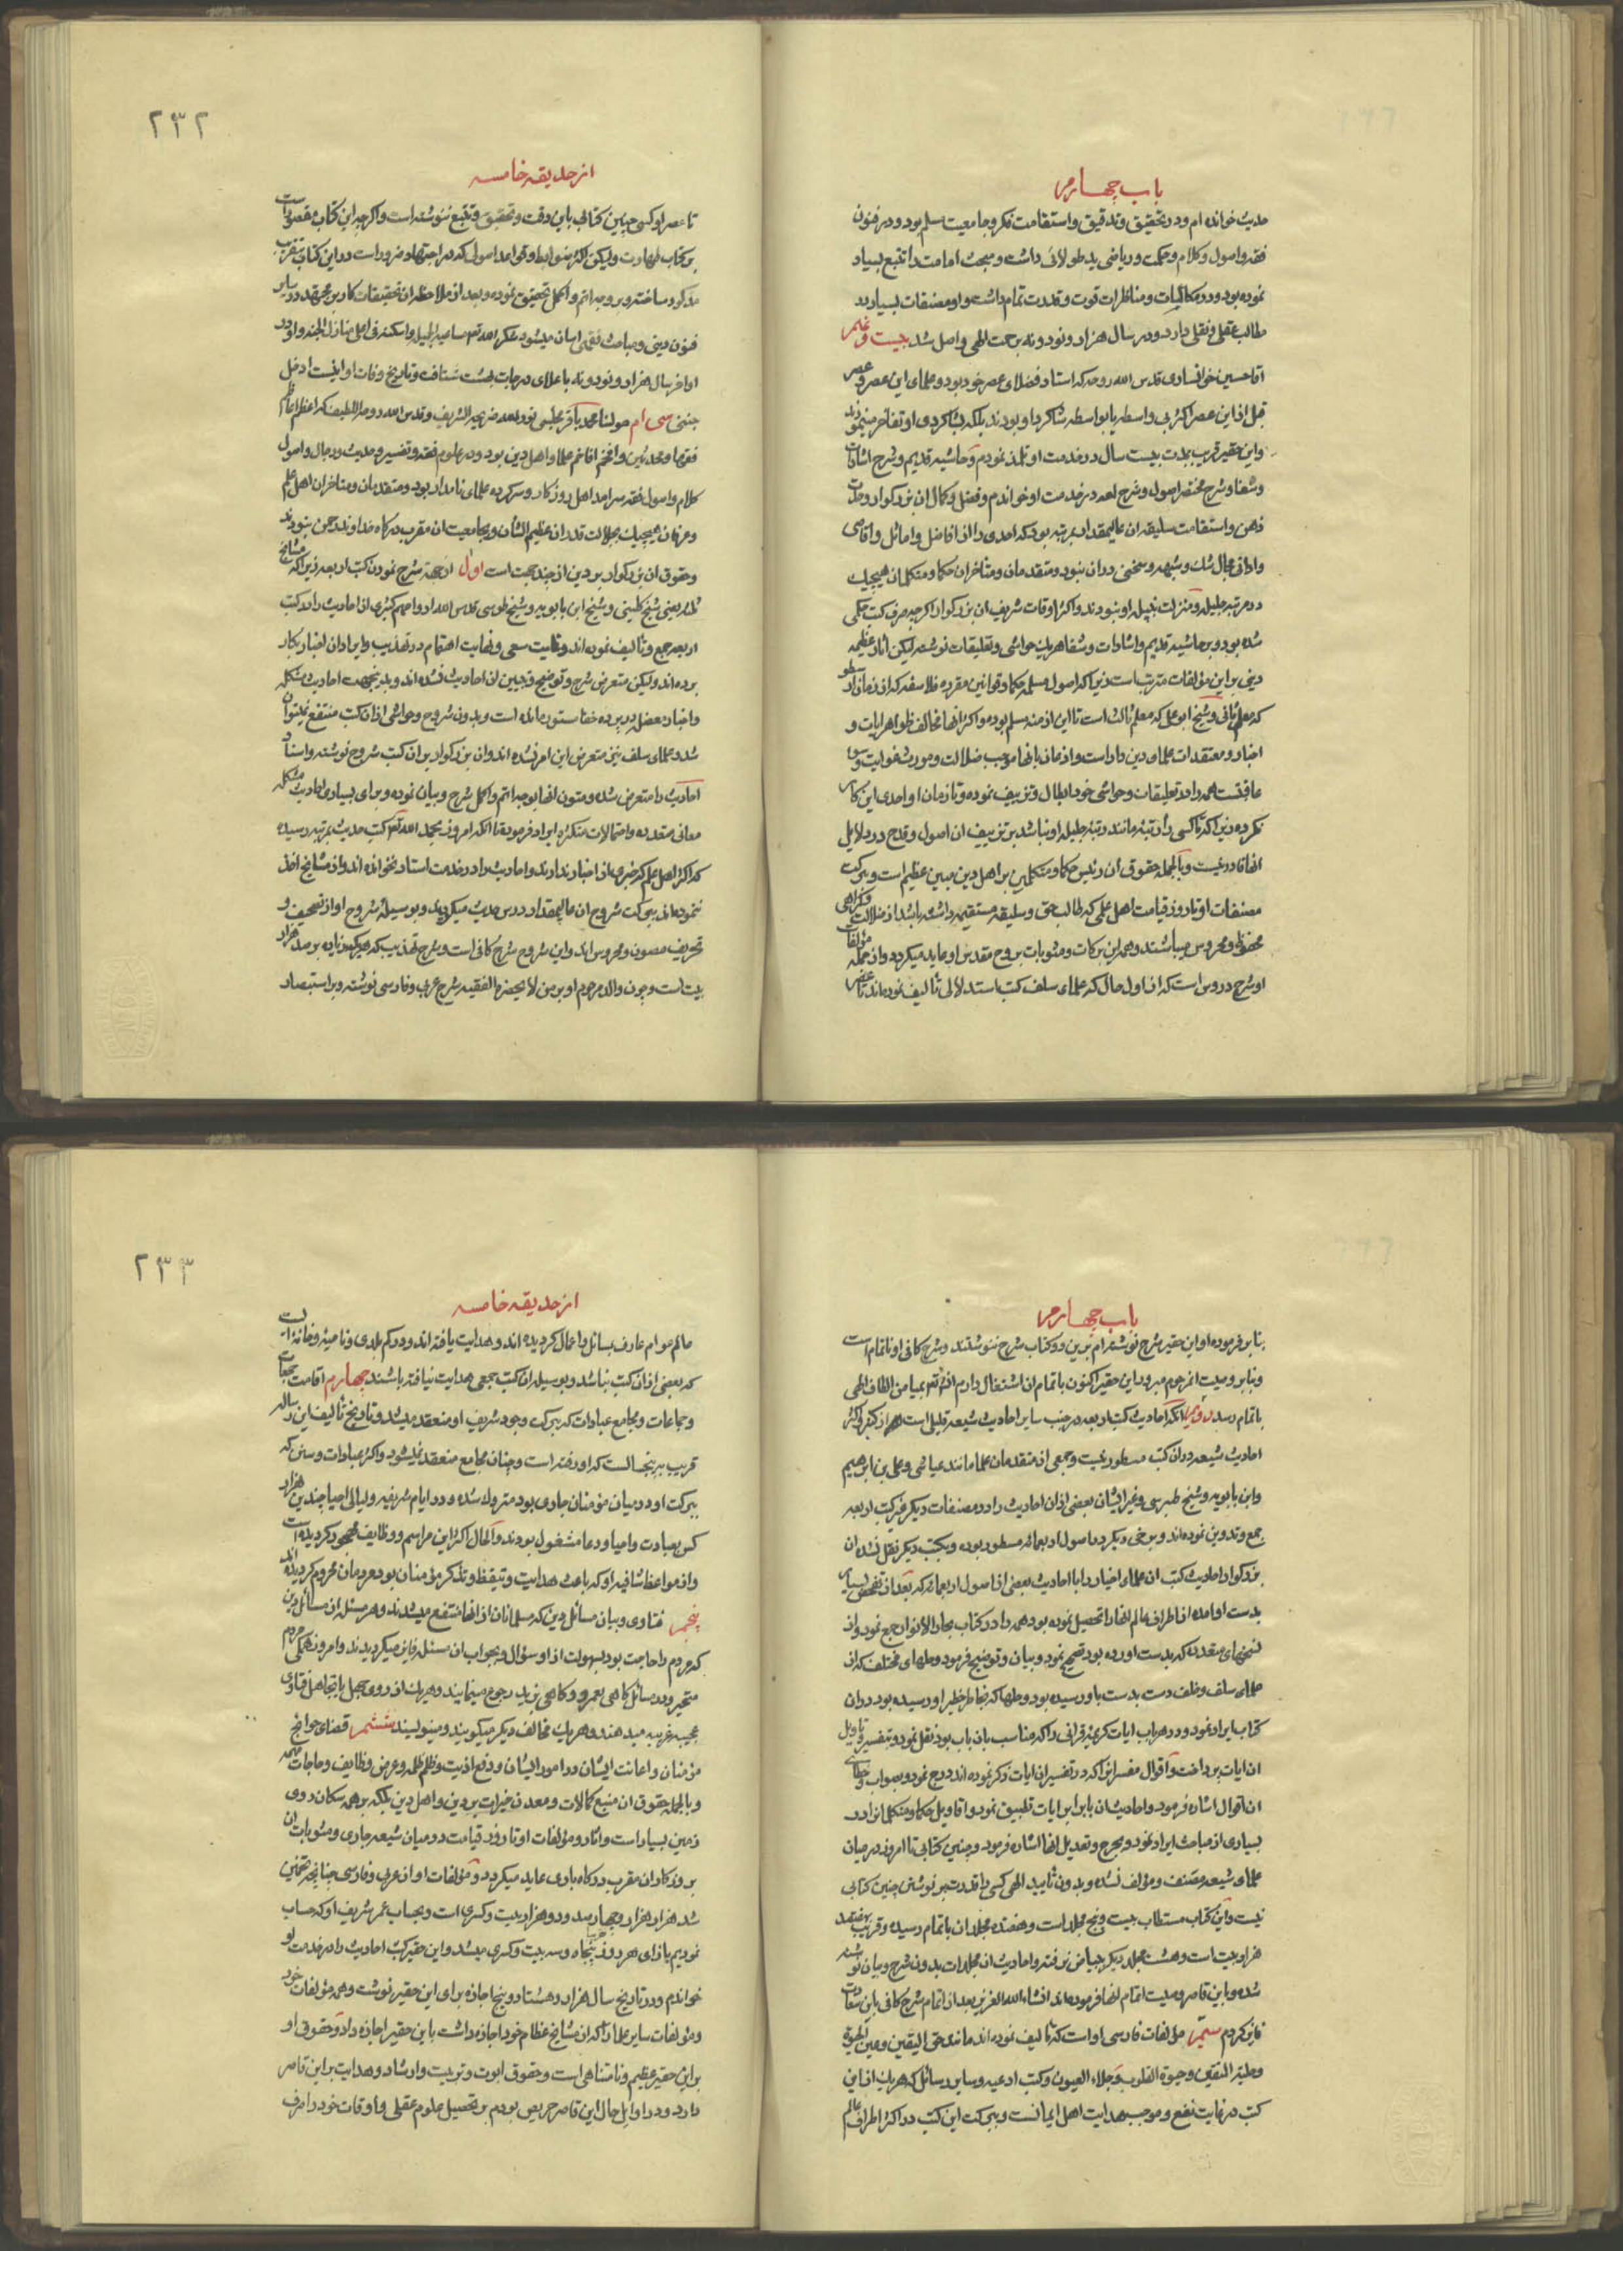 باب چهارم
حدیث خوانده ام و در تحقیق و تدقیق و استقامت فکر و جامعیت مسلم بود و در فنون
فقه و اصول و کلام و حکمت و ریاضی ید طولائی داشت و مبحث امامت را تتبع بسیار
نموده بود و در مکالمات و مناظرات قوت و قدرت تمام داشت و او مصنفات بسیار در
مطالب عقلی و نقلی دارد و در سال هزار و نود و نه برحمت الهی واصل شد بیست و نهم
اقا حسین خوانساری قدس الله روحه که استاد فضلای عصر خود بود و علمای این عصر و عصر
قبل از این عصر اکثر بی واسطه یا بواسطه شاکرد او بودند بلکه بشاکردی او تفاخر مینمودند
و این حقیر قریب بمدت بیست سال در خدمت او تلمذ نمودم و حاشیه قدیم و شرح اشارات
و شفا و شرح مختصر اصول و شرح لمعه در خدمت او خواندم و فضل و کمال ان بزرکوار و حدت
ذهن و استقامت سلیقه ان عالیمقدار بمرتبه بود که احدی را از افاضل و اماثل و اقاصی
و ادانی مجال شک و شبهه و سخنی در ان نبود و متقدمان و متأخران حکما و متکلمان هیچیک
در مرتبه جلیله و منزلت نبیله او نبودند و اکثر اوقات شریف ان بزرکوار اکرچه صرف کتب حکمی
شده بود و بر حاشیه قدیم و اشارات و شفا هر یک حواشی و تعلیقات نوشته لیکن اثار عظیمه
دینی بر این مؤلفات مترتب است زیرا که اصول مسلمه حکما و قوانین مقرره فلاسفه که از زمان ارسطو
که معلم ثانی و شیخ ابو علی که معلم ثالث است تا این ازمنه مسلم بوده و اکثر انها مخالف ظواهر ایات و
اخبار و معتقدات علمای دین دار است و اذعان بانها موجب ضلالت و مورث غوایت و سوء
عاقبتست همه را در تعلیقات و حواشی خود ابطال و تزییف نموده و تا زمان او احدی این کار
نکرده زیرا که تا کسی را رتبه مانند رتبه جلیله او نباشد بر تزییف ان اصول و قدح در دلایل
انها قادر نیست و بالجمله حقوق ان رئیس حکما و متکلمین بر اهل دین مبین عظیم است و ببرکت
مصنفات او تا روز قیامت اهل علمی که طالب حق و سلیقه مستقیمه داشته باشد از ضلالت و کمراهی
محفوظ و محروس میباشند و همه این برکات و مثوبات بروح مقدس او عاید میکردد و از جمله مؤلفات
او شرح دروس است که از اول حال که علمای سلف کتب استدلالی تألیف نموده اند تا عصر
۲۳۲
از حدیقه خامسه
تا عصر او کسی چنین کتابی باین دقت و تحقیق و تتبع ننوشته است و اکرچه این کتاب مقصور است
بر کتاب طهارت ولیکن اکثر ضوابط و قواعد اصولی که در اجتهاد ضرور است در این کتاب بتقریب
مذکور ساخته و بر وجه اتم و اکمل تحقیق نموده و بعد از ملاحظه ان تحقیقات کار بر مجتهد در سایر
فنون دینی و مباحث فقهی اسان میشود شکر الله تعم مساعیه الجمیله و اسکنه فی اعلی منازل الجنه و او در
اواخر سال هزار و نود و نه باعلای درجات بهشت شتافت و تاریخ وفات او اینست ادخلی
جنتی سی ام مولنا محمد باقر مجلسی نور الله ضریحه الشریف و قدس الله روحه اللطیف که اعظم اعاظم
فقها و محدثین و افخم افاخم علما و اهل دین بود و در علوم فقه و تفسیر و حدیث و رجال و اصول
کلام و اصول فقه سرامد اهل روزکار و سرکرده علمای نامدار بود و متقدمان و متاخران اهل علم
و عرفان هیچیک بجلالت قدر ان عظیم الشان و بجامعیت ان مقرب درکاه خداوند رحمن نبودند
و حقوق ان بزرکوار بر دین از چند جهت است اول از جهة شرح نمودن کتب اربعه زیرا که مشایخ
ثلثه یعنی شیخ کلینی و شیخ ابن بابویه و شیخ طوسی قدس الله ارواحهم کثیری از احادیث را در کتب
اربعه جمع و تألیف نموده اند و غایت سعی و نهایت اهتمام در تهذیب و ایراد ان اخبار بکار
برده اند ولیکن متعرض شرح و توضیح و تبیین ان احادیث نشده اند و بدینجهت احادیث مشکله
و اخبار معضله در پرده خفا مستور مانده است و بدون شروح و حواشی از ان کتب منتفع نمیتوان
شد و علمای سلف نیز متعرض این امر نشده اند و ان بزرکوار بر ان کتب شروح نوشته و اسناد
احادیث را متعرض شده و متون انها بوجه اتم و اکمل شرح و بیان نموده و برای بسیاری احادیث مشکله
معانی متعدده و احتمالات متکثره ایراد فرموده تا انکه امروز بحمد الله تعم کتب حدیث بمرتبه رسیده
که اکثر اهل علم که خبری از اخبار ندارند و احادیث را در خدمت استاد نخوانده اند و از مشایخ اخذ
ننموده اند ببرکت شروح ان عالیمقدار درس حدیث میکویند و بوسیله شروح او از تصحیف و
تحریف مصون و محروس اند و این شروح شرح کافی است و شرح تهذیب که هر یک زیاده بر صد هزار
بیت است و چون والد مرحوم او بر من لا یحضره الفقیه شرح عربی و فارسی نوشته و بر استبصار
باب چهارم
بنا بر فرموده او این حقیر شرح نوشته ام بر این دو کتاب شرح ننوشتند و شرح کافی او ناتمام است
و بنا بر وصیت انمرحوم مبرور این حقیر اکنون باتمام ان اشتغال دارم انشاء الله تعم بمیامن الطاف الهی
باتمام رسد دویم انکه احادیث کتب اربعه در جنب سایر احادیث شیعه قلیلی است و اکثر
احادیث شیعه در ان کتب مسطور نیست و جمعی از متقدمان علما مانند عیاشی و علی بن ابرهیم
و ابن بابویه و شیخ طبرسی و غیر ایشان بعضی از ان احادیث را در مصنفات دیکر غیر کتب اربعه
جمع و تدوین نموده اند و برخی دیکر در اصول اربعمائه مسطور بوده و بکتب دیکر نقل نشده ان
بزرکوار احادیث کتب ان علمای اخیار را با احادیث بعضی از اصول اربعمائه که بعد از تفحص بسیار
بدست او امده از اطراف عالم انها را تحصیل نموده بود همه را در کتاب بحار الانوار جمع نمود و از
نسخهای متعدده که بدست اورده بود تصحیح نمود و بیان و توضیح فرمود و حلهای مختلف که از
علمای سلف و خلف دست بدست باو رسیده بود و حلها که بخاطر خطیر او رسیده بود در ان
کتاب ایراد نمود و در هر باب ایات کریمه قرانی را که مناسب بان باب بود نقل نمود و بتفسیر و تاویل
ان ایات پرداخت و اقوال مفسرانرا که در تفسیر ان ایات ذکر نموده اند درج نمود و بصواب و خطای
ان اقوال اشاره فرمود و احادیث ان باب را با ایات تطبیق نمود و اقاویل حکما و متکلمانرا در
بسیاری از مباحث ایراد نمود و بجرح و تعدیل انها اشاره فرمود و چنین کتابی تا امروز در میان
علمای شیعه مصنف و مؤلف نشده و بدون تأیید الهی کسی را قدرت بر نوشتن چنین کتابی
نیست و این کتاب مستطاب بیست و پنج مجلد است و هفده مجلد ان باتمام رسیده و قریب بهفتصد
هزار بیت است و هشت مجلد دیکر ببیاض نرفته و احادیث ان مجلدات بدون شرح و بیان نوشته
شده و باین قاصر وصیت اتمام انها فرموده اند انشاء الله العزیز بعد از اتمام شرح کافی باین سعادت
فایز کردم سیّم مؤلفات فارسی او است که تألیف نموده اند مانند حق الیقین و عین الحیوة
و حلیة المتقین و حیوة القلوب و جلاء العیون و کتب ادعیه و سایر رسائل که هر یک از این
کتب در نهایت نفع و موجب هدایت اهل ایمانست و ببرکت این کتب در اکثر اطراف عالم
۲۳۳
از حدیقه خامسه
عالم عوام عارف بمسائل و اعمال کردیده اند و هدایت یافته اند و در کم بلدی و ناحیة و خانه است
که بعضی از ان کتب نباشد و بوسیله ان کتب جمعی هدایت نیافته باشند چهارم اقامت جمعات
و جماعات و مجامع عبادات که ببرکت وجود شریف او منعقد میشد و تاریخ تألیف این رساله
قریب به پنجسالست که او رفته است و چنان مجامع منعقد نمیشود و اکثر عبادات و سنن که
ببرکت او در میان مؤمنان جاری بود متروک شده و در ایام شریفه و لیالی احیا چندین هزار
کس بعبادت و احیا و دعا مشغول بودند و الحال اکثر این مراسم و وظایف مهجور کردیده است
و از مواعظ شافیه او که باعث هدایت و تیقظ و تذکر مؤمنان بود مردمان محروم کردیده اند
پنجم فتاوی و بیان مسائل دین که مسلمانان از انها منتفع میشدند و هر مسئله از مسائل دین
که مردم را حاجت بود بسهولت از او سؤال و بجواب ان مسئله فایز میکردیدند و امروز همکی مردم
متحیر و در مسائل کاهی بعمرو و کاهی بزید رجوع مینمایند و هر یک از روی جهل یا تجاهل فتاوی
عجیبه غریبه میدهند و هر یک مخالف دیکر میکویند و مینویسند ششم قضای حوایج
مؤمنان و اعانت ایشان در امور ایشان و دفع اذیت و ظلم ظلمه و عرض وظایف و حاجات همه
و بالجمله حقوق ان منبع کمالات و معدن خیرات بر دین و اهل دین بلکه بر همه سکان روی
زمین بسیار است و اثار و مؤلفات او تا روز قیامت در میان شیعه جاری و مثوبات ان
بروزکار ان مقرب درکاه باری عاید میکردد و مؤلفات او از عربی و فارسی چنانچه تخمین
شد هزار هزار و چهارصد و دو هزار بیت و کسری است و بحساب عمر شریف او که حساب
نمودیم بازای هر روز پنجاه و سه بیت و کسری میشد و این حقیر کتب احادیث را در خدمت او
خواندم و در تاریخ سال هزار و هشتاد و پنج اجازه برای این حقیر نوشت و همه مؤلفات خود
و مؤلفات سایر علما را که از مشایخ عظام خود اجازه داشت باین حقیر اجازه داد و حقوق او
بر این حقیر عظیم و نامتناهی است و حقوق ابوت و تربیت و ارشاد و هدایت بر این قاصر
دارد و در اوایل حال این قاصر حریص بودم بر تحصیل علوم عقلی و اوقات خود را صرف